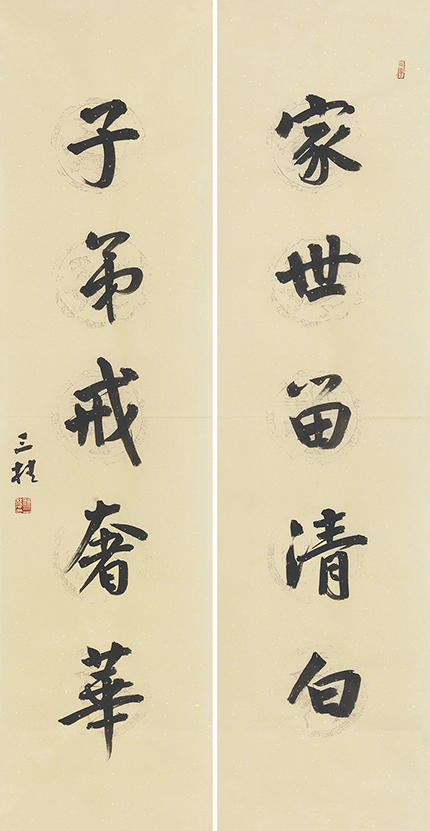 家世留清白
子弟戒奢華
三桂